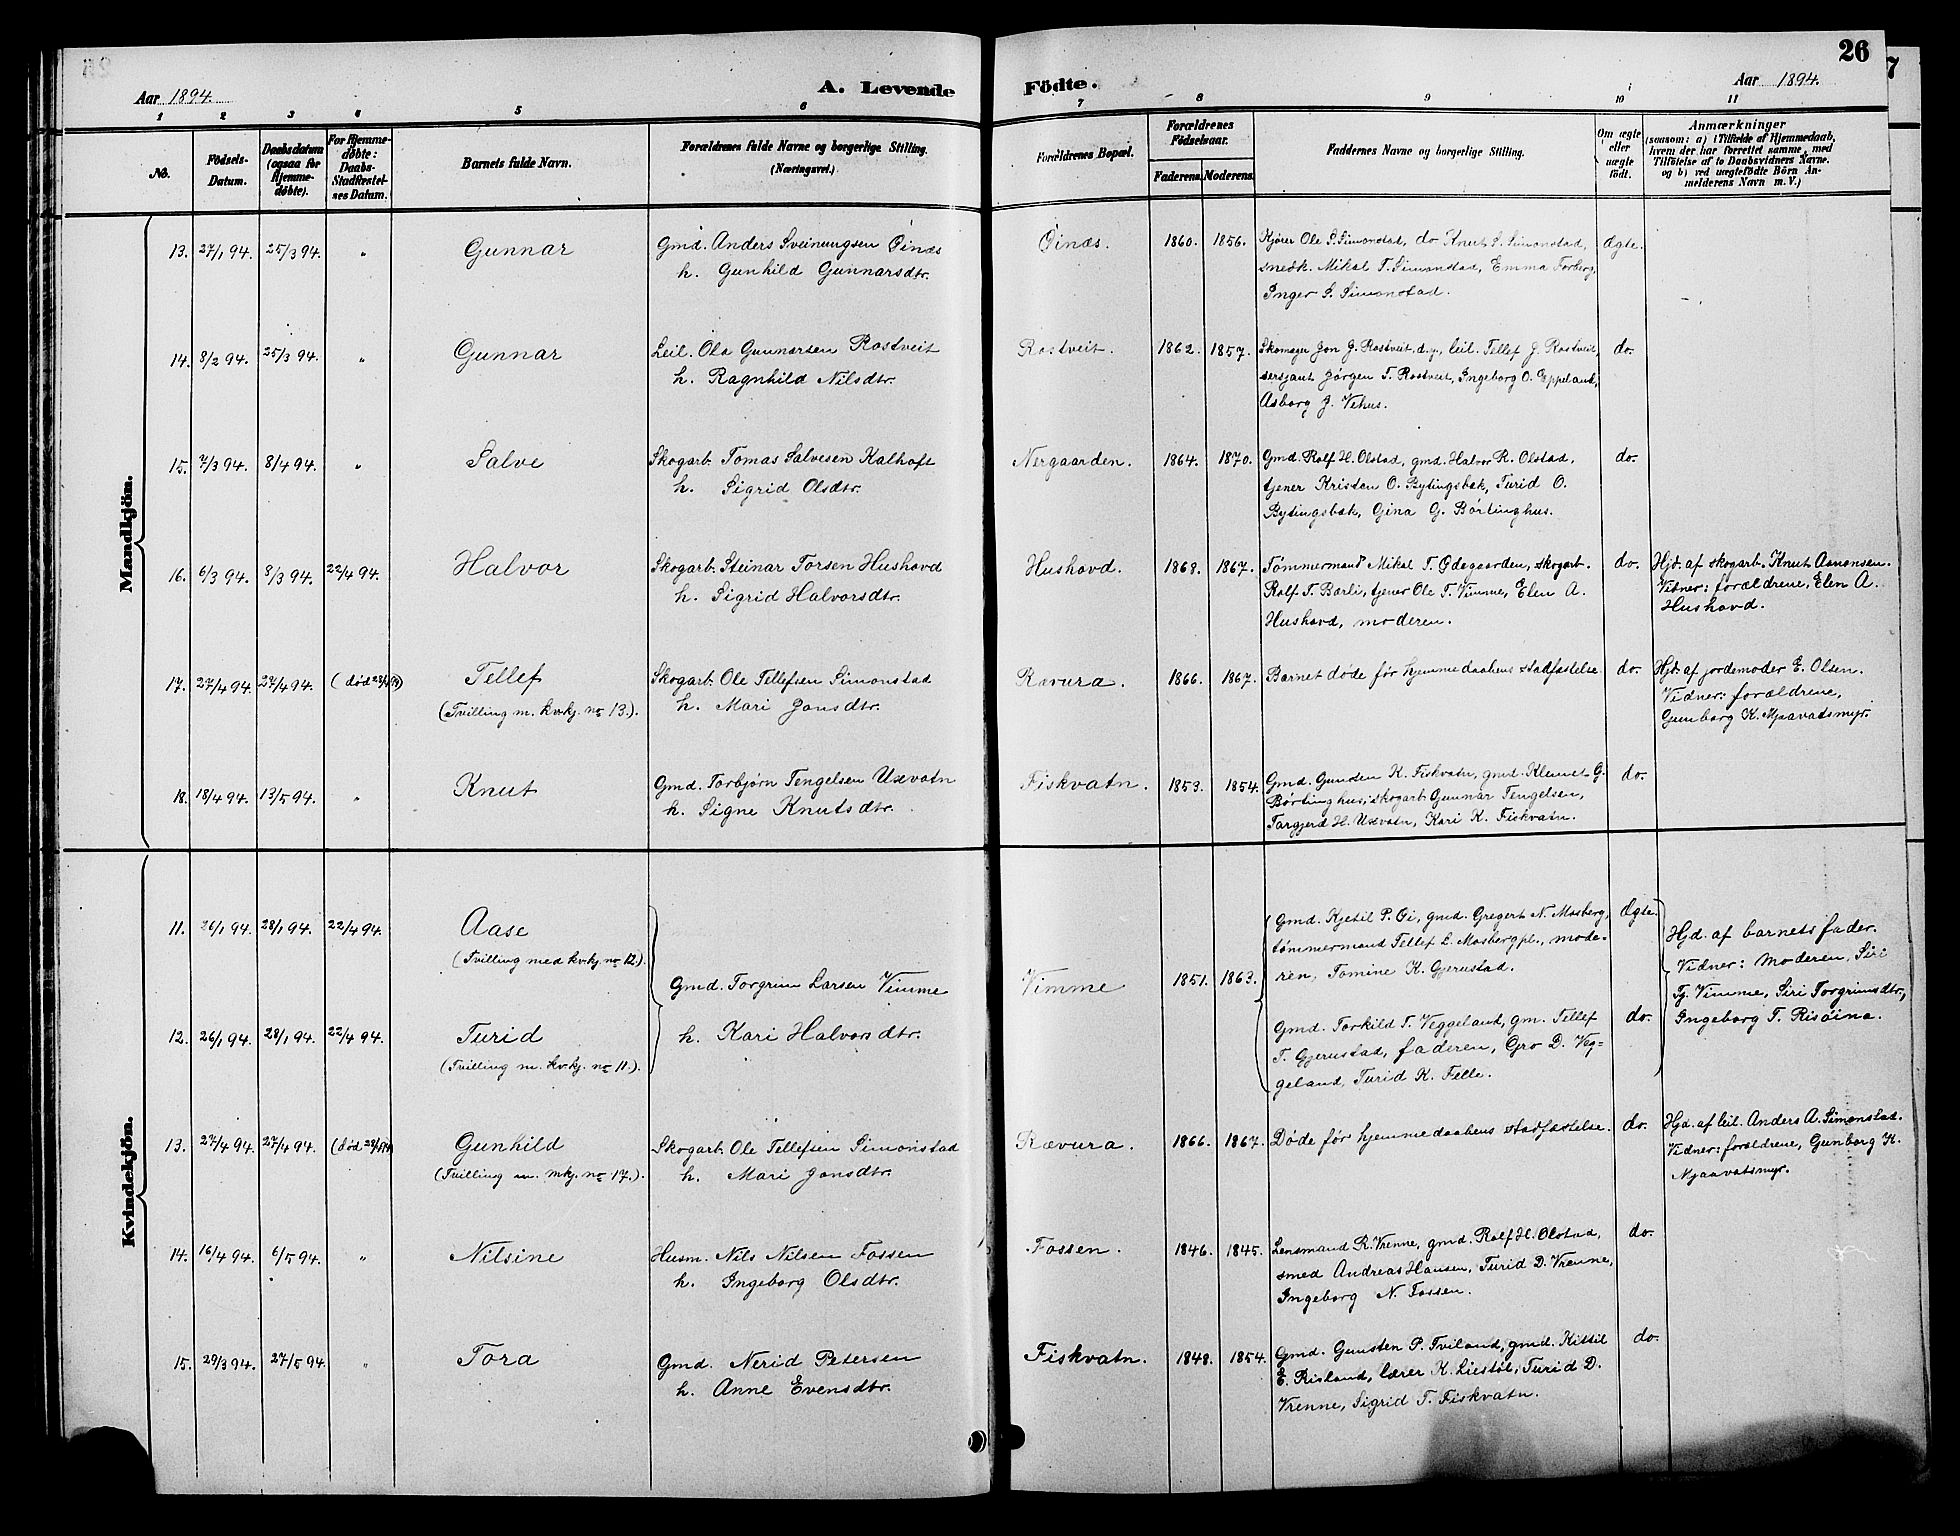 26
Aar 1894.
A. Levende Födte.
Aar 1894.
1 2 3 4 5 6 7 8 9 10 11
No.
Födsels-Datum.
Daabsdatum (ogsaa for Hjemme-döbte).
For Hjemme-döbte: Daabs-Stadfæstel-ses Datum.
Barnets fulde Navn.
Forældrenes fulde Navne og borgerlige Stilling.
(Næringsvei.)
Forældrenes Bopæl.
Forældrenes Födselsaar.
Faderens. Moderens.
Faddernes Navne og borgerlige Stilling.
Om ægte eller uægte födt.
Anmærkninger
(saasom: a) i Tilfælde af Hjemmedaab, hvem der har forrettet samme, med Tilföielse af to Daabsvidners Navne. og b) ved uægtefödte Börn An-melderens Navn m. V.)
Mandkjön.
13. 27/1 94. 25/3 94. " Gunnar Gmd. Anders Sveinungsen Øinæs Øinæs. 1860. 1856. Kjører Ole S. Simonstad, do Knut S. Simonstad, Ægte.
h. Gunhild Gunnarsdtr. snedk. Mikal T. Simonstad, Emma Forberg,
Inger S. Simonstad.
14. 8/2 94. 25/3 94. " Gunnar Leil. Ola Gunnarsen Rostveit Rostveit. 1862. 1857. Skomager Jon J. Rostveit, d.y., leil. Tellef J. Rostveit, do.
h. Ragnhild Nilsdtr. sersjant Jørgen T. Rostveit, Ingeborg O. Eppeland,
Asborg J. Vehus.
15. 7/3 94. 8/4 94. " Salve Skogarb. Tomas Salvesen Kalhoft Nergaarden. 1864. 1870. Gmd. Rolf H. Olstad, gmd. Halvor R. Olstad, do.
h. Sigrid Olsdtr. tjener Kristen O. Bytingsbæk, Turid O.
Bytingsbæk, Gina G. Børtinghus.
16. 6/3 94. 8/3 94. 22/4 94. Halvor Skogarb. Steinar Torsen Hushovd Hushovd. 1868. 1867. Tømmermand Mikal T. Ødegaarden, skogarb. do. Hjd. af skogarb. Knut Aamonsen.
h. Sigrid Halvorsdtr. Rolf T. Barli, tjener Ole T. Vimme, Elen A. Vidner: forældrene, Elen A.
Hushovd, moderen. Hushovd.
17. 27/4 94. 27/4 94. (død 28/4 94) Tellef Skogarb. Ole Tellefsen Simonstad Rævura. 1866. 1867. Barnet døde før hjemmedaabens stadfæstelse. do. Hjd. af jordemoder E. Olsen.
(Tvilling m. kvkj. no 13.). h. Mari Jonsdtr. Vidner: forældrene,
Gunborg K. Mjaavatsmyr.
18. 18/4 94. 13/5 94. " Knut Gmd. Torbjørn Tengelsen Uxvatn Fiskvatn. 1853. 1854. Gmd. Gunden K. Fiskvatn, gmd. Klemet G. do.
h. Signe Knutsdtr. Børtinghus, skogarb. Gunnar Tengelsen,
Torgjerd H. Uxvatn, Kari K. Fiskvatn.
Kvindekjön.
11. 26/1 94. 28/1 94. 22/4 94. Aase Gmd. Kjetil P. Øi, gmd. Gregert N. Mosberg, Ægte.
(Tvilling med kvkj. no 12.). tømmermand Tellef L. Mosbergpl., mode-
ren, Tomine K. Gjerustad.
Gmd. Torgrim Larsen Vimme Vimme 1851. 1863. Hjd. af barnets fader.
h. Kari Halvorsdtr. Vidner: Moderen, Siri
Tg. Vimme, Siri Torgrimsdtr.,
Ingeborg T. Risøina.
12. 26/1 94. 28/1 94. 22/4 94. Turid Gmd. Torkild T. Veggeland, gm. Tellef do.
(Tvilling m. kvkj. no 11.). T. Gjerustad, faderen, Gro D. Veg=
geland, Turid K. Felle.
13. 27/4 94. 27/4 94. (død 28/4 94) Gunhild Skogarb. Ole Tellefsen Simonstad Rævura. 1866. 1867. Døde før hjemmedaabens stadfæstelse. do. Hjd. af leil. Anders A. Simonstad.
(Tvilling m. mkj. no 17.). h. Mari Jonsdtr. Vidner: forældrene, Gunborg K.
Mjaavatsmyr.
14. 16/4 94. 6/5 94. " Nilsine Husm. Nils Nilsen Fossen Fossen. 1846. 1845. Lensmand R. Vrenne, gmd. Rolf H. Olstad, do.
h. Ingeborg Olsdtr. smed Andreas Hansen, Turid D. Vrenne,
Ingeborg N. Fossen.
15. 29/3 94. 27/5 94. " Tora Gmd. Nerid Petersen Fiskvatn. 1848. 1854. Gmd. Gunsten P. Tviland, gmd. Kittil do.
h. Anne Evensdtr. E. Risland, lærer K. Liestøl, Turid D.
Vrenne, Sigrid T. Fiskvatn.